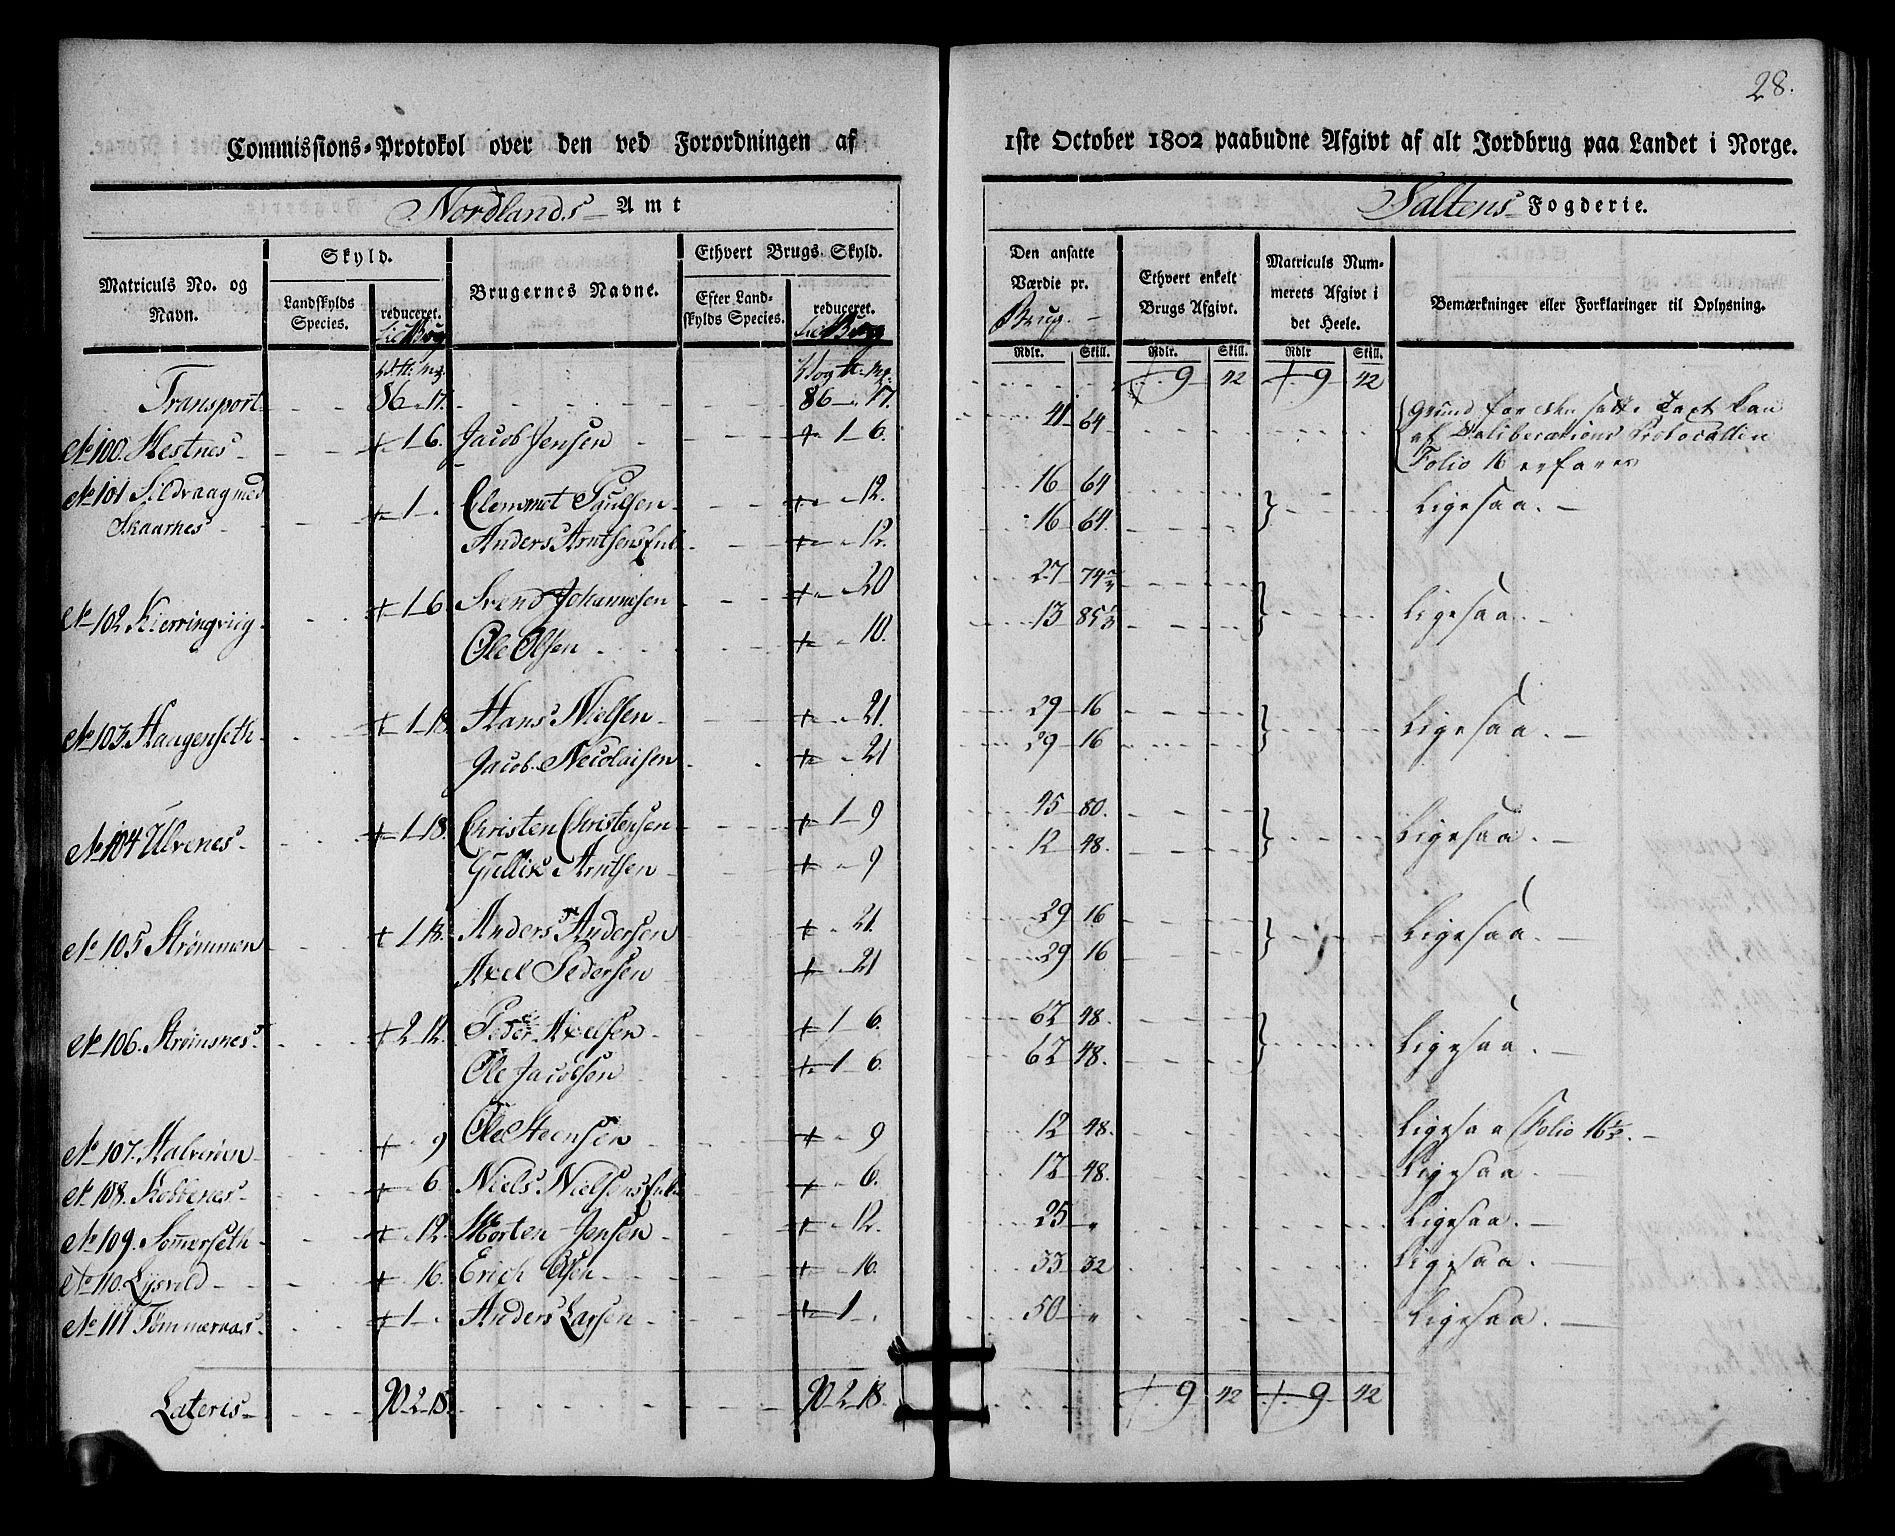 28.
Commissions-Protokol over den ved Forordningen af 1ste October 1802 paabudne Afgivt af alt Jordbrug paa Landet i Norge.
Nordlands Amt Saltens Fogderie.
Matriculs No. og Navn.
Skyld.
Landskylds Species.
reduceret.
Brugernes Navne.
Ethvert Brugs Skyld.
Efter Landskylds Species.
reduceret.
Den ansatte Værdie pr. Brug.
Rdlr. Skill.
Ethvert enkelt Brugs Afgivt.
Rdlr. Skill.
Matriculs Nummerets Afgivt i det Heele.
Rdlr Skill.
Bemærkninger eller Forklaringer til Oplysning.
Transport 86 " 17. 86 " 17. 9 42 9 42
No 100. Hestnes 1 6 Jacob Jensen 1 6. 41 64 Grund for den satte Taxt kan
af Deliberations Protocollen
Folio 16 erfares
No 101 Sildvaag med 1 " Clemmet Paulsen " 12. 16 64 Ligesaa.
Skaarnes Anders Arntsens Enke " 12. 16 64
No 102 Kierringviig 1 6 Svend Johannesen " 20 27 74 2/3 Ligesaa.
Ole Olsen " 10. 13 85 1/3
No 103 Haugenseth 1 18 Hans Nielsen " 21. 29 16 Ligesaa.
Jacob Nicolaisen " 21 29 16
No 104 Ulvenes 1 18. Christen Christensen 1 9 45 80. Ligesaa.
Gullik Arntsen " 9 12 48.
No 105 Strømmen 1 18. Anders Andersen " 21. 29 16 Ligesaa.
Axel Pedersen " 21 29 16
No 106. Strømsnes 2 12. Peder Axelsen 1 6. 62 48. Ligesaa.
Ole Jacobsen 1 6. 62 48.
No 107. Halvøien " 9 Ole Steensen " 9 12 48. Ligesaa Folio 16 1/2.
No 108. Kobbenes " 6 Niels Nielsens Enke " 6. 12 48. Ligesaa
No 109. Sommerseth " 12. Morten Jensen " 12. 25 " Ligesaa.
No 110. Lysvold " 16. Erich Olsen " 16. 33 32 Ligesaa.
No 111 Tømmeraas 1 " Anders Larsen 1 " 50 " Ligesaa.
Lateris 90 2 18. 90 2 18. 9 42 9 42